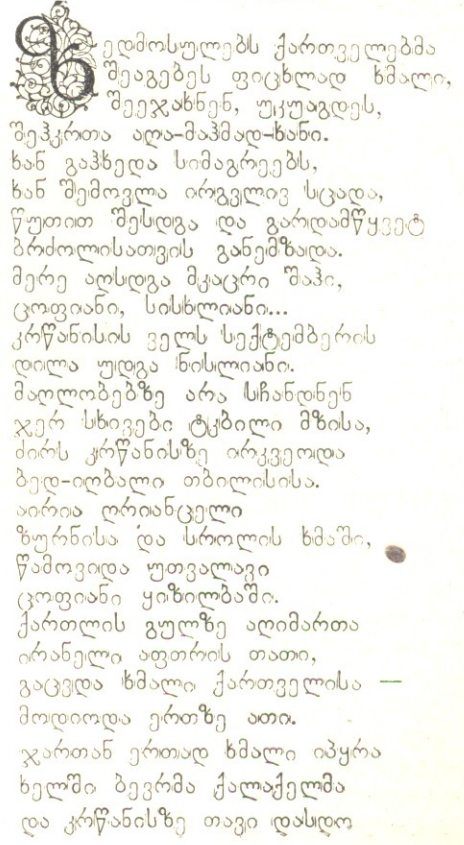 ზედმოსულებს ქართველებმა
შეაგებეს ფიცხლად ხმალი,
შეეჯახნენ, უკუაგდეს,
შეჰკრთა აღა-მაჰმად-ხანი.
ხან გაჰხედა სიმაგრეებს,
ხან შემოვლა ირგვლივ სცადა,
წუთით შესდგა და გარდამწყვეტ
ბრძოლისათვის განემზადა.
მერე აღსდგა მკაცრი შაჰი,
ცოფიანი, სისხლიანი...
კრწანისის ველს სექტემბერის
დილა უდგა ნისლიანი.
მაღლობებზე არა სჩანდნენ
ჯერ სხივები ტკბილი მზისა,
ძირს კრწანისზე ირკვეოდა
ბედ-იღბალი თბილისისა.
აირია ღრიანცელი
ზურნისა და სროლის ხმაში,
წამოვიდა უთვალავი
ცოფიანი ყიზილბაში.
ქართლის გულზე აღიმართა
ირანელი აფთრის თათი,
გაცვდა ხმალი ქართველისა —
მოდიოდა ერთზე ათი.
ჯართან ერთად ხმალი იპყრა
ხელში ბევრმა ქალაქელმა
და კრწანისზე თავი დასდო